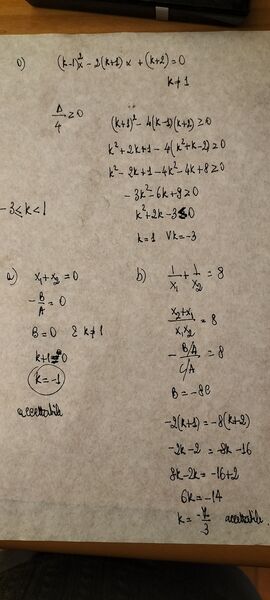 0) (k-1)x² - 2(k+1)x + (k+2) = 0
k ≠ 1
Δ/4 ≥ 0
(k+1)² - 4(k-1)(k+2) ≥ 0
k² + 2k + 1 - 4(k² + k - 2) ≥ 0
k² - 2k + 1 - 4k² - 4k + 8 ≥ 0
- 3k² - 6k + 9 ≥ 0
k² + 2k - 3 ≤ 0
-3 ≤ k < 1
k = 1 V k = -3
a) x₁ + x₂ = 0
- B/A = 0
B = 0 E k ≠ 1
k + 1 = 0
k = -1
accettabile
b) 1/x₁ + 1/x₂ = 8
(x₂ + x₁)/(x₁x₂) = 8
- (B/A)/(C/A) = 8
B = -8C
-2(k+1) = -8(k+2)
-2k - 2 = -8k - 16
8k - 2k = -16 + 2
6k = -14
k = -7/3 accettabile